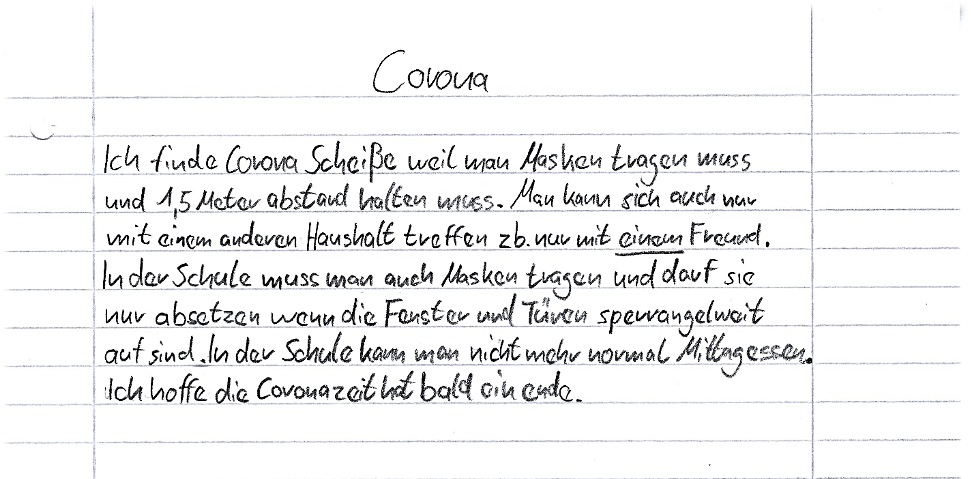 Corona
Ich finde Corona Scheiße weil man Masken tragen muss
und 1,5 Meter abstand halten muss. Man kann sich auch nur
mit einem anderen Haushalt treffen zb. nur mit einem Freund.
In der Schule muss man auch Masken tragen und darf sie
nur absetzen wenn die Fenster und Türen sperrangelweit
auf sind. In der Schule kann man nicht mehr normal Mittagessen.
Ich hoffe die Coronazeit hat bald ein ende.